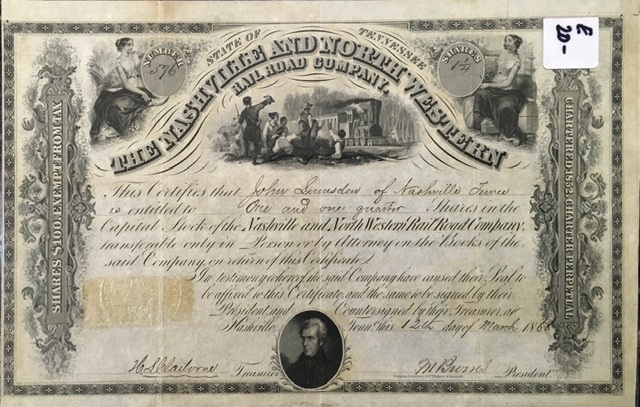 NUMBER
576
STATE OF TENNESSEE
SHARES
1 1/4
THE NASHVILLE AND NORTH WESTERN
RAIL ROAD COMPANY.
SHARES $100. EXEMPT FROM TAX
CHARTERED 1852. CHARTER PERPETUAL
This Certifies that John Lumsden of Nashville Tenn
is entitled to One and one quarter Shares in the
Capital Stock of the Nashville and North Western Rail Road Company,
transferable only in Person or by Attorney on the Books of the
said Company, on return of this Certificate.
In testimony whereof the said Company have caused their Seal to
be affixed to this Certificate, and the same to be signed by their
President, and Countersigned by their Treasurer, at
Nashville, Tenn. this 12th day of March 186
H. L. Claiborne Treasurer M Burns President
20-